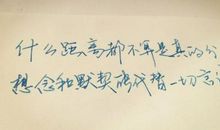 什么距离都不算是真的分
想念和默契能代替一切言